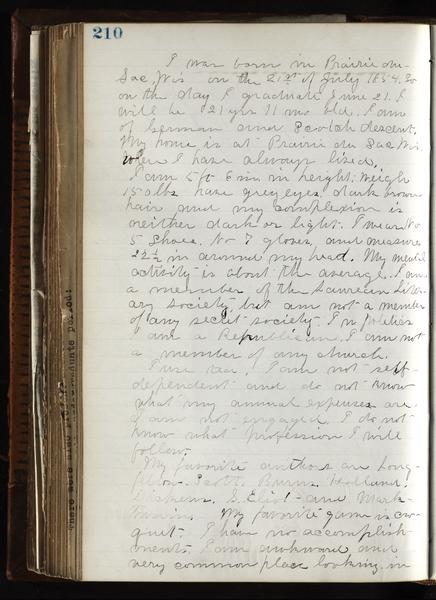 210
I was born in Prairie du-
Sac, Wis on the 21st of July 1854. So
on the day I graduate June 21. I
will be 21 yrs 11 mo. old. I am
of German and Scotch descent.
My home is at Prairie du Sac Wis.
where I have always lived.
I am 5 ft 6 in in height; weigh
150 lbs have grey eyes, dark brown
hair and my complexion is
neither dark or light. I wear No
5 shoes, No 7 gloves, and measure
22 1/2 in around my head. My mental
activity is about the average. I am
a member of the Laurean Liter-
ary society, but am not a member
of any secret society. In politics
I am a Republican. I am not
a member of any church.
I use tea. I am not self-
dependent and do not know
what my annual expenses are.
I am not engaged. I do not
know what profession I will
follow.
My favorite authors are Long-
fellow Scott. Burns. Holland.
Dickens. G. Eliot and Mark-
twain. My favorite game is cro-
quet. I have no accomplish-
ments. I am awkward and
very common place looking, in